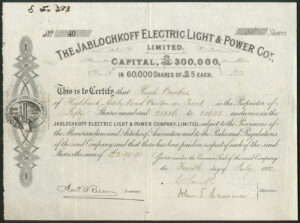 No. 40
THE JABLOCHKOFF ELECTRIC LIGHT & POWER COY.
LIMITED.
CAPITAL, £300,000,
IN 60,000 SHARES OF £5 EACH.
This is to Certify that Hugh Brooks
of Highbank, Ashby Road Burton on Trent is the Proprietor of
Fifty Shares numbered 21586 to 21635 inclusive in the
JABLOCHKOFF ELECTRIC LIGHT & POWER COMPANY, LIMITED, subject to the Provisions of
the Memorandum and Articles of Association and to the Rules and Regulations
of the said Company and that there has been paid in respect of each of the said
Shares the sum of
Given under the Common Seal of the said Company,
the Fourth day of July